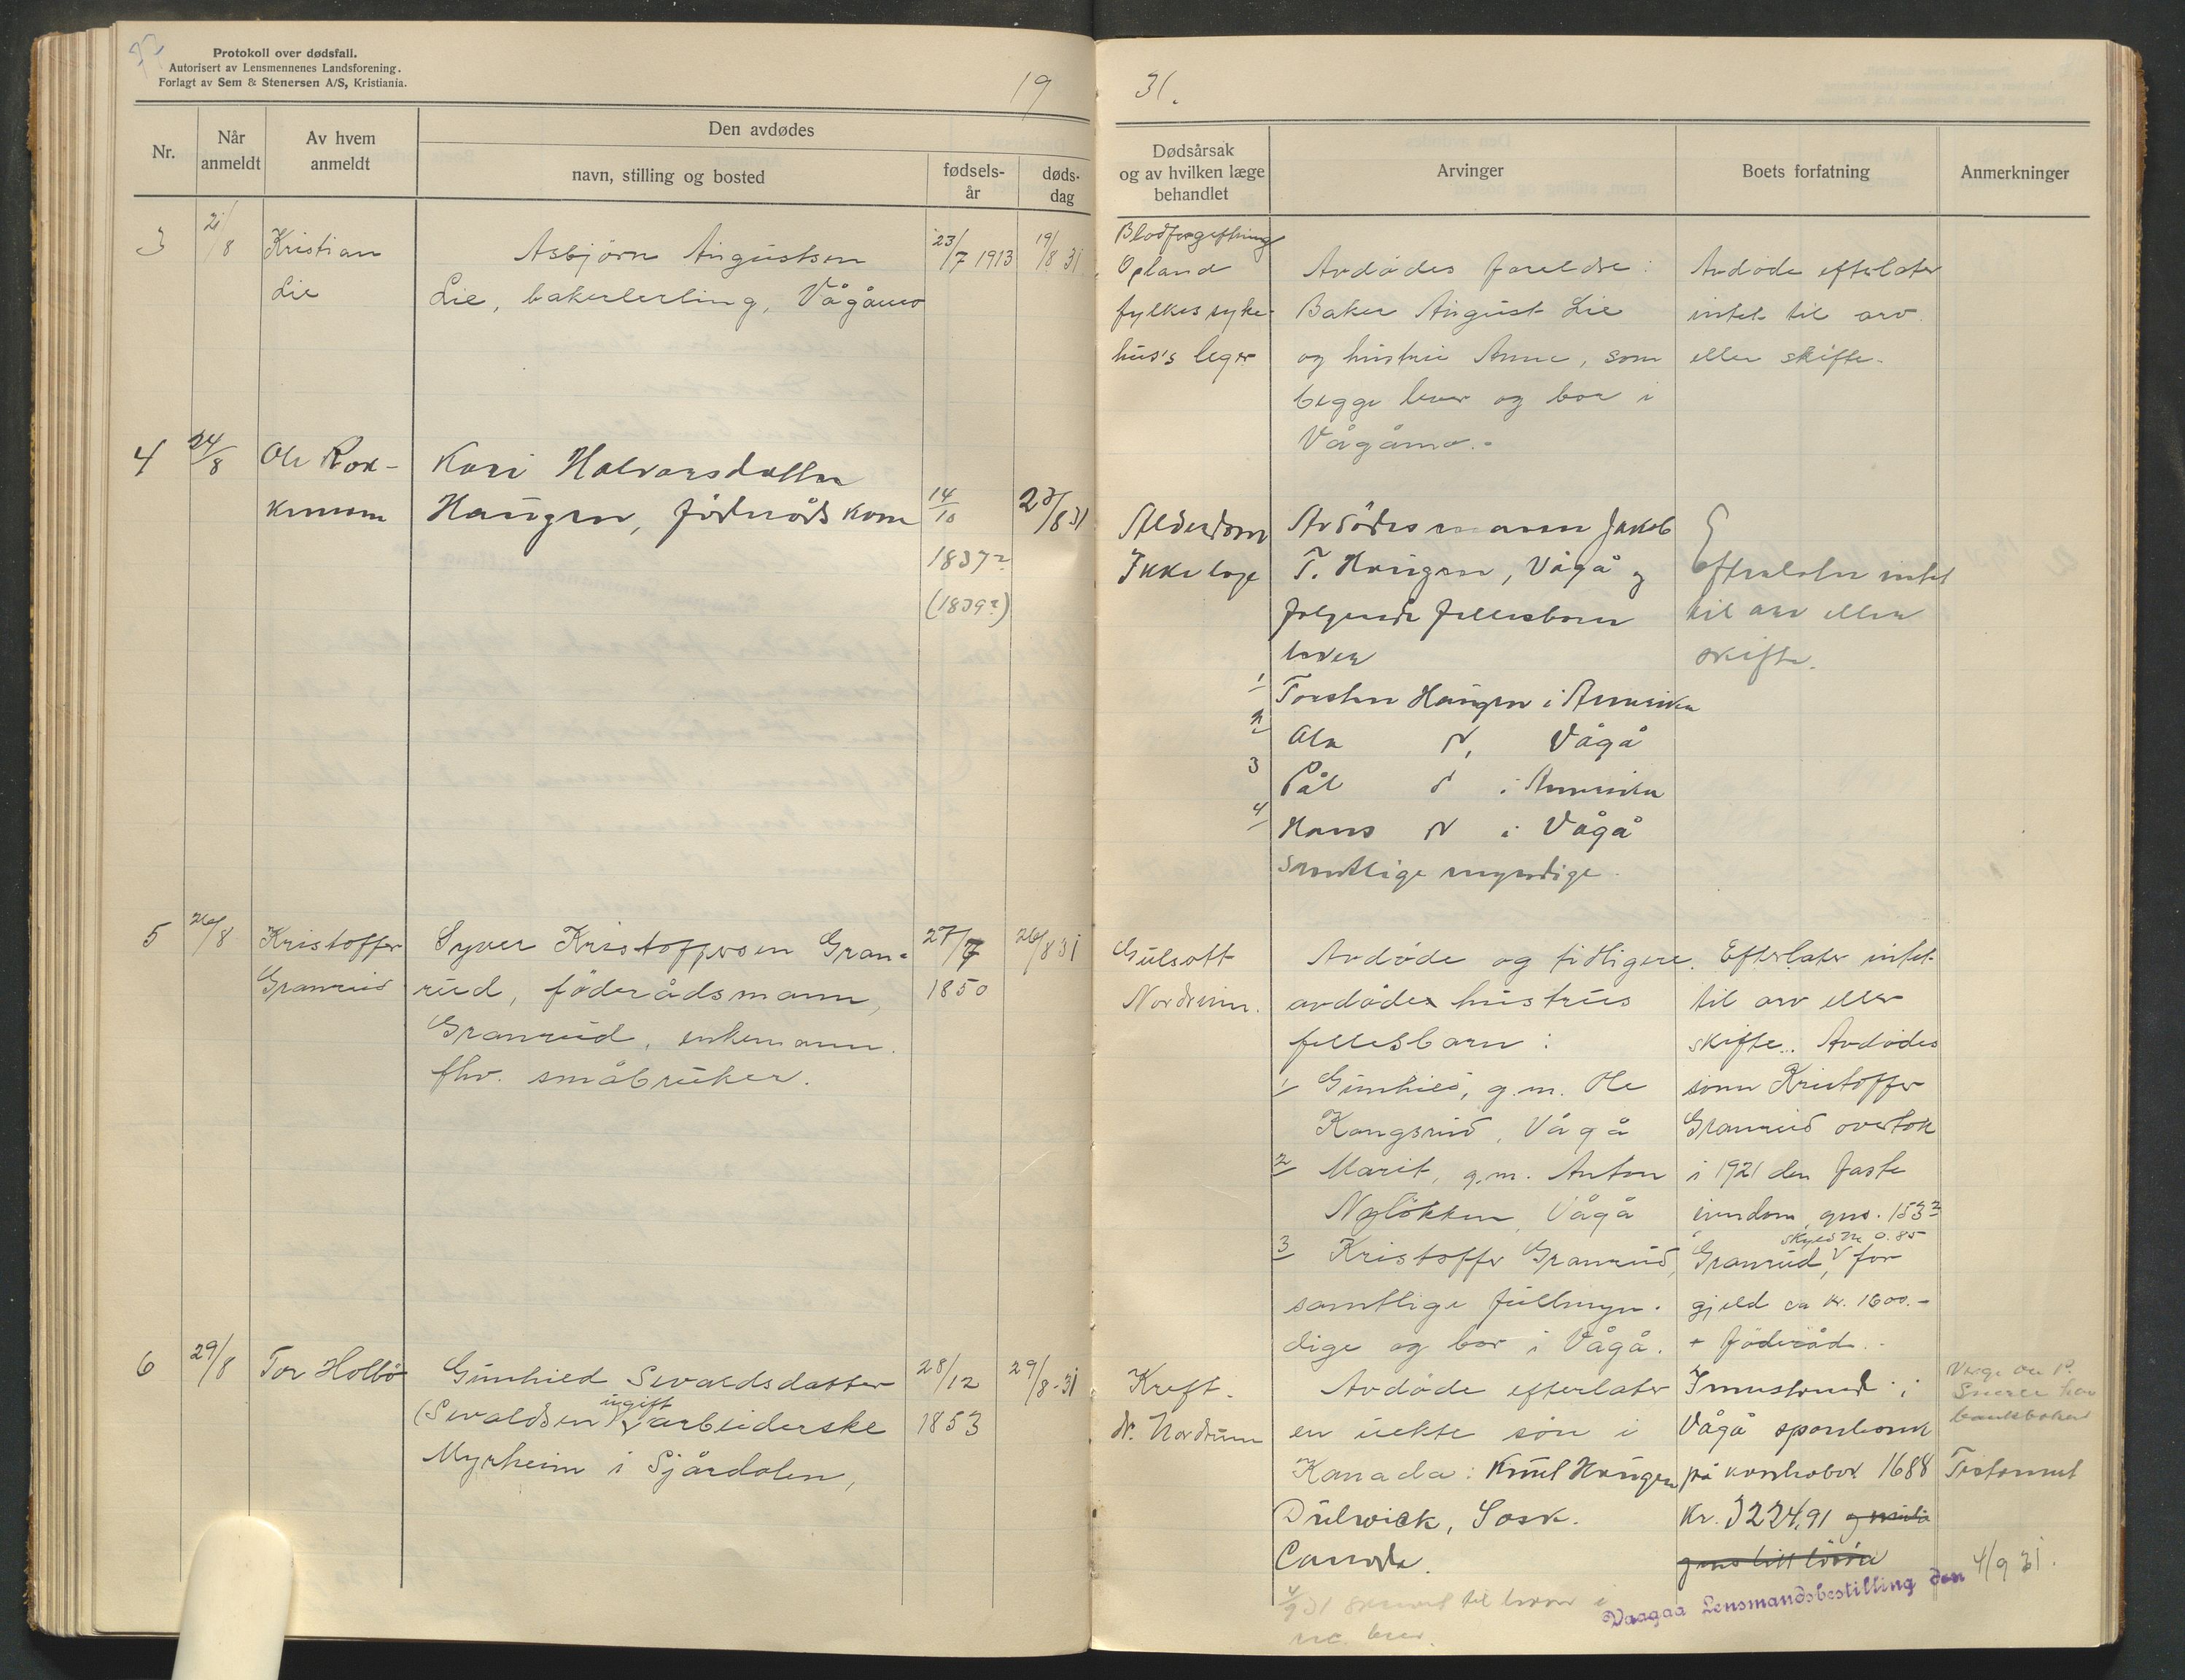 77
Protokoll over dødsfall.
Autorisert av Lensmennenes Landsforening.
Forlagt av Sem & Stenersen A/S, Kristiania.
19
Nr.
Når
anmeldt
Av hvem
anmeldt
Den avdødes
navn, stilling og bosted
fødsels-
år
døds-
dag
3
21/8
Kristian
Lie
Asbjørn Augustsen
Lie, bakerlerling, Vågåmo
23/7 1913
19/8 31
4
24/8
Ole Rok-
Kari Halvorsdatter
Haugen, föderåds kone
14/10
1837?
(1839?)
23/8 31
5
26/8
Kristoffer
Granrud
Syver Kristoffersen Gran-
rud, föderådsmann,
Granrud, enkemann.
fhv. småbruker.
27/7
1850
26/8 31
6
29/8
Tor Holbö
Gunhild Sevaldsdatter
ugift
(Sevaldsen) arbeiderske
Myrheim i Sjårdalen,
28/12
1853
29/8-31
31.
Dødsårsak
og av hvilken læge
behandlet
Arvinger
Boets forfatning
Anmerkninger
Blodforgiftning
Opland
fylkes syke-
hus's leger
Avdödes foreldre:
Baker August Lie
og hustru Anne, som
begge lever og bor i
Vågåmo.-
Avdöde efterlater
intet til arv
eller skifte.
Alderdom
Ikke lege
Avdödes mann Jakob
T. Haugen, Vågå og
følgende fellesbarn
lever
1 Torsten Haugen i Amerika
2 Ola d, Vågå
3 Pål d i Amerika
4 Hans d i Vågå
samtlige myndige.
Efterlater intet
til arv eller
skifte.
Gulsott
Nordrum.
Avdöde og tidligere
avdöde hustrus
fellesbarn:
1 Gunhild, g.m. Ole
Kongsrud, Vågå
2 Marit, g.m. Anton
Nylökken, Vågå
3 Kristoffer Granrud,
samtlige fullmyn-
dige og bor i Vågå.
Efterlater intet
til arv eller
skifte. Avdödes
sönn Kristoffer
Granrud overtok
i 1921 den faste
eiendom, gnr. 153
skyld m 0.85
Granrud, V for
gjeld ca kr. 1600.-
+ föderåd.
Kreft.
dr. Nordrum
Avdöde efterlater
en uekte sön i
Kanada: Knut Haugen
Dulwick, Sask.
Canada.
Innestående i
Vågå sparebank
på kontrabok 1688
Kr. 3224,91
har
bankboken
Testament
4/9 31 til
brev.
Vaagaa Lensmandsbestilling den 4/9 31.